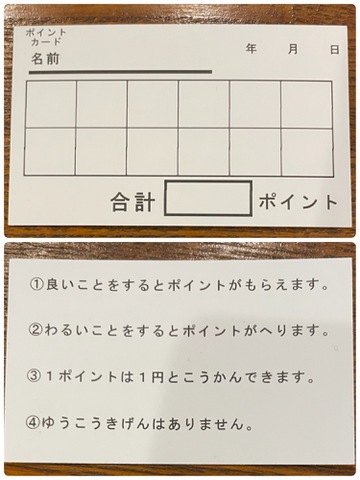 ポイント
カード
年　月　日
名前
合計　ポイント
①良いことをするとポイントがもらえます。
②わるいことをするとポイントがへります。
③１ポイントは１円とこうかんできます。
④ゆうこうきげんはありません。